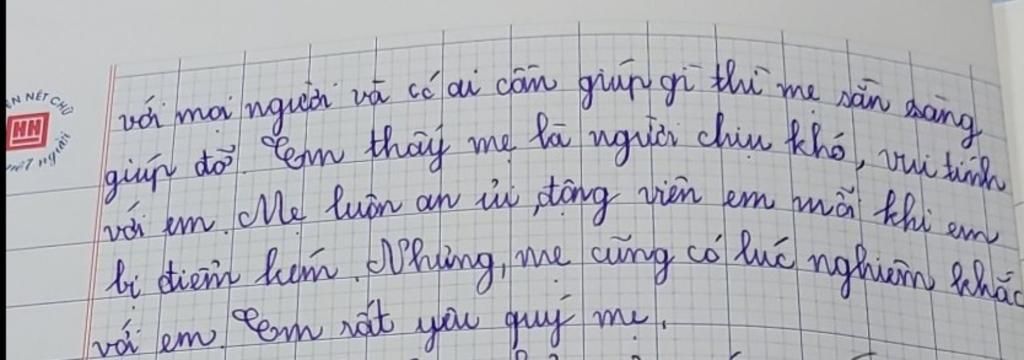 N NÉT CHỮ
HH
nết người
với mọi người và có ai cần giúp gì thì mẹ sẵn sàng
giúp đỡ. Em thấy mẹ là người chịu khó, vui tính
với em. Mẹ luôn an ủi, động viên em mỗi khi em
bị điểm kém. Nhưng, mẹ cũng có lúc nghiêm khắc
với em. Em rất yêu quý mẹ.